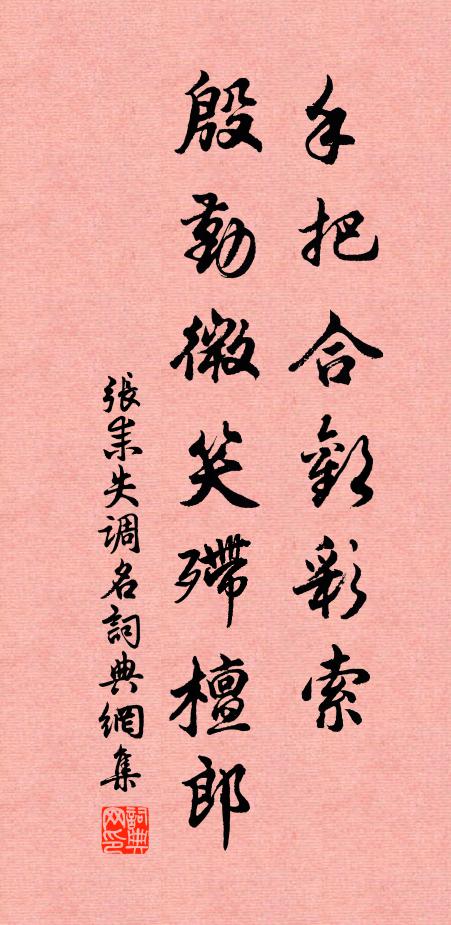 手把合歡彩索
殷勤微笑殢檀郎
張耒失調名詞典網集
詞典网印